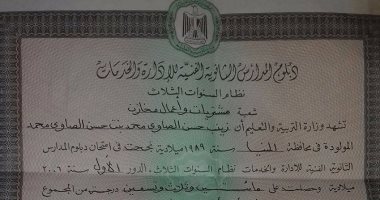 دبلوم المدارس الثانوية الفنية للإدارة والخدمات
نظام السنوات الثلاث
شعبة مشتريات وأعمال مخازن
تشهد وزارة التربية والتعليم أن زينب حسن الصاوي محمد بنت حسن الصاوي محمد
المولودة في محافظة المنيا سنة ١٩٨٩ ميلادية نجحت في امتحان دبلوم المدارس
الثانوية الفنية للإدارة والخدمات نظام السنوات الثلاث، الدور الأول سنة ٢٠٠٦
ميلادية وحصلت على مائتين وثلاث وتسعين درجة من المجموع